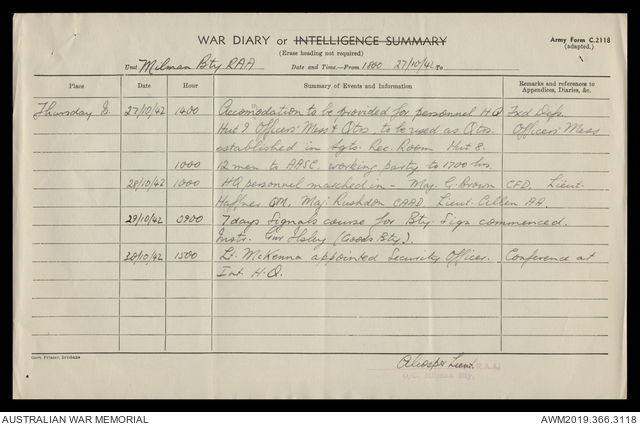 WAR DIARY or INTELLIGENCE SUMMARY
Army Form C.2118
(adapted.)
(Erase heading not required)
Unit Milman Bty RAA Date and Time—From 1800 27/10/42 To
Place Date Hour Summary of Events and Information Remarks and references to Appendices, Diaries, &c.
Thursday I. 27/10/42 1400 Accomodation to be provided for personnel H.Q. Fxd Def.
Hut 9 Officers' Mess & Qtrs, to be used as Qtrs. Officers' Mess
established in Sgts. Rec. Room Hut 8.
1000 12 men to AASC. working party to 1700 hrs.
28/10/42 1000 HQ personnel marched in - Maj. G. Brown CFD. Lieut.
Haffner QM. Maj. Rushdon CAAD. Lieut. Cullen AA.
29/10/42 0900 7 days Signals course for Bty Sigs commenced.
Instr. Gnr Ilsley (Goods Bty).
30/10/42 1500 Lt. McKenna appointed Security Officer. Conference at
Int. H.Q.
Govt. Printer, Brisbane
Lieut. R.A.A.
AUSTRALIAN WAR MEMORIAL
AWM2019.366.3118